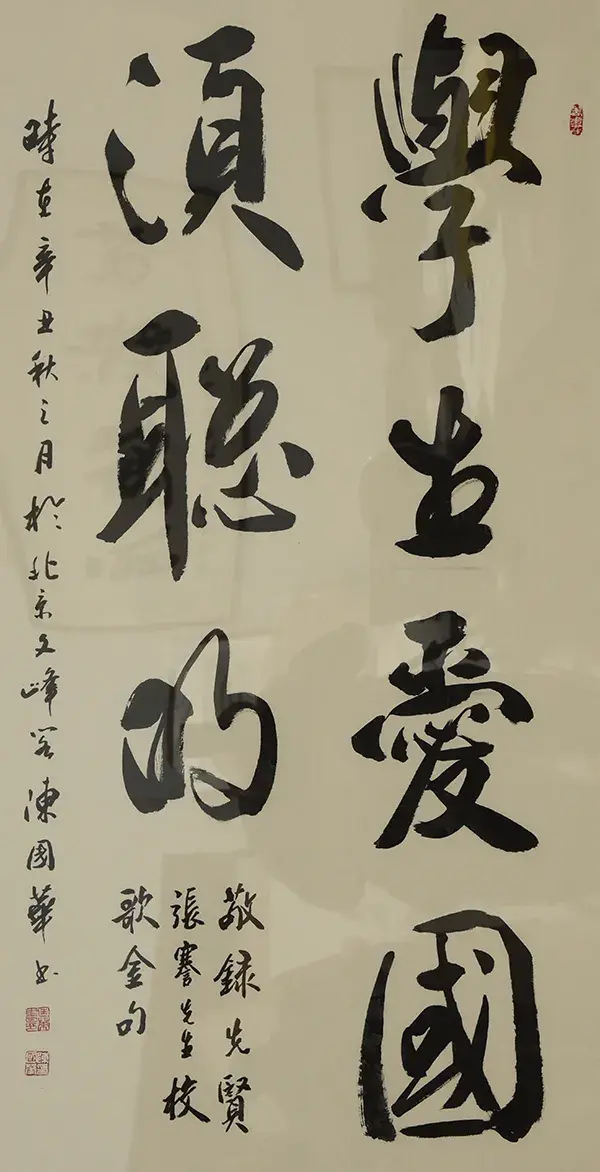 學生愛國
須聰明
敬録先賢
張謇先生校
歌金句
時在辛丑秋之月於北京文峰閣陳國華書